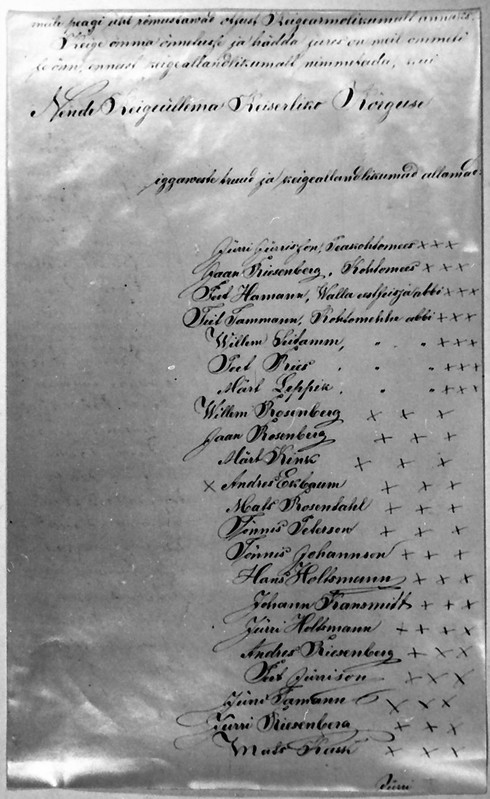 meile peagi abt römustawad otsust Keigearmolikumalt annaks.
Keige omma önnetusse ja hädda jures on meil ommeti
se önn, ennast keigeallandlikumalt nimmetada, kui
Nende Keigeüllema Keiserliko Körguse
iggaweste truud ja keigeallandlikumad allamad.
Jürri Jürrisson, Peakohtomees + + +
Jaan Riesenberg, Kohtomees × × ×
Peet Hamann, Walla eestseisja abbi + + +
Priit Tammann, Kohtomehhe abbi + + +
Willem Seitamm, " " + + +
Peet Pries, " " + + +
Märt Leppik, " " + + +
Willem Rosenberg + + +
Jaan Rosenberg + + +
Märt Kink + + +
× Andres Ekbaum + + +
Mats Rosentahl + + +
Tönnis Peterson + + +
Tönnis Johannson + + +
Hans Holtsmann + + +
Johann Kransmitt + + +
Jürri Holtsmann + + +
Andres Riesenberg + × ×
Peet Jürrison × × ×
Jürri Tamann × × ×
Jürri Riesenberg + + +
Mats Kask + + +
Jürri